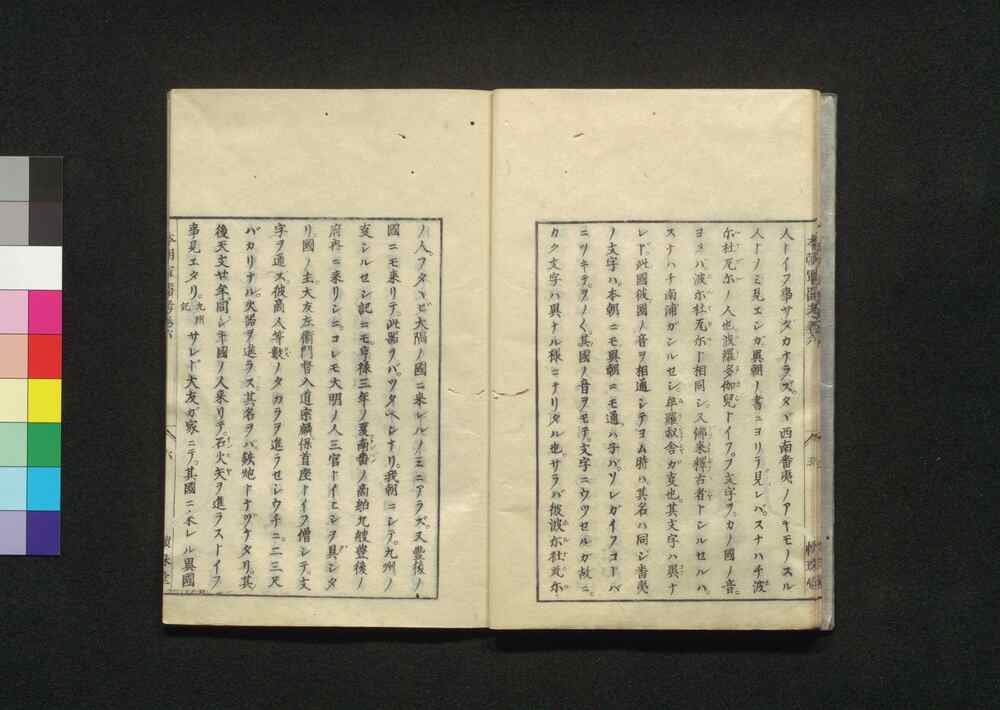 人トイフ事サダカナラズタヾ西南番夷ノアキモノスル
人トノミ見エシガ異朝ノ書ニヨリテ見レバスナハチ波
尓杜瓦尓ノ人也波羅多伽児トイフヲ文字ヲカノ國ノ音ニ
ヨメバ波尓杜瓦尓ト相同シ又佛来釋古者トシルセルハ
スナハチ南浦ガシルセシ牟羅叔舎ガ変也其文字ハ異ナ
レド此國彼國ノ音ヲ相通シテヨム時ハ其名ハ同シ番夷
ノ文字ハ本朝ニモ異朝ニモ通ハ子バソレガイフコトバ
ニツキテヲノ〱其國ノ音ヲモテ文字ニウツセルガ故ニ
カク文字ハ異ナル様ニナリタル也サラバ彼波尓杜瓦尓
ノ人フタヽビ大隅ノ國ニ来レルノミニアラズ又豊後ノ
國ニモ来リテ此器ヲバツタヘシナリ我朝ニシテ九州ノ
変シルセシ記ニモ享禄三年ノ夏南番ノ商舶九艘豊後ノ
府内ニ来リシニコレモ大明ノ人三官トイヒシヲ具シタ
リ國ノ主大友左衛門督入道宗麟得首座トイフ僧シテ文
字ヲ通ス彼商人等数ノタカラヲ進ラセシウチニ二三尺
バカリナル火器ヲ進ラス其名ヲバ鉄炮トナヅケタリ其
後天文廿年ノ間シ牟國ノ人来リテ石火矢ヲ進ラストイフ
事見エタリ九州記サレド大友ガ家ニテ其國ニ来レル異國